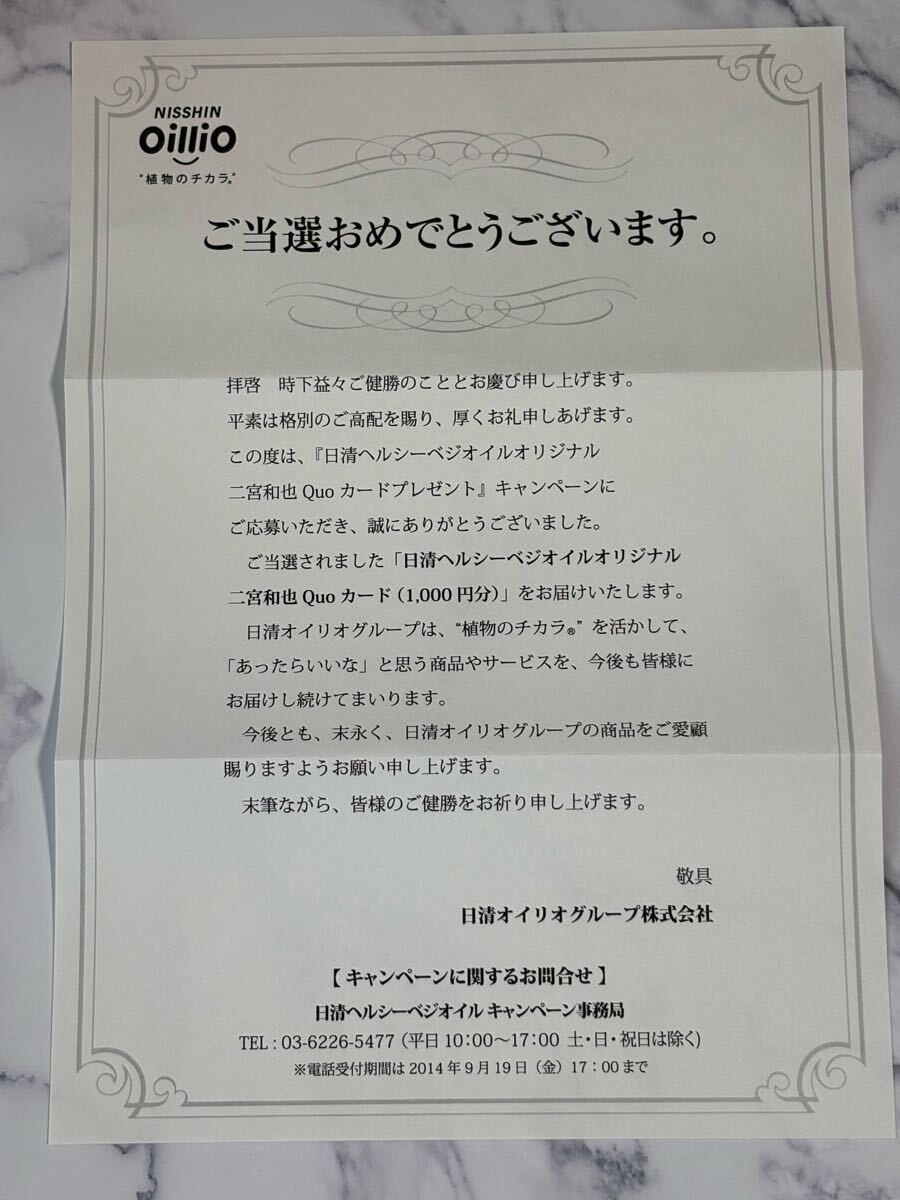 NISSHIN
OilliO
“植物のチカラ®”
ご当選おめでとうございます。
拝啓　時下益々ご健勝のこととお慶び申し上げます。
平素は格別のご高配を賜り、厚くお礼申しあげます。
この度は、『日清ヘルシーベジオイルオリジナル
二宮和也 Quo カードプレゼント』キャンペーンに
ご応募いただき、誠にありがとうございました。
　ご当選されました「日清ヘルシーベジオイルオリジナル
二宮和也 Quo カード（1,000 円分）」をお届けいたします。
　日清オイリオグループは、“植物のチカラ®” を活かして、
「あったらいいな」と思う商品やサービスを、今後も皆様に
お届けし続けてまいります。
　今後とも、末永く、日清オイリオグループの商品をご愛顧
賜りますようお願い申し上げます。
　末筆ながら、皆様のご健勝をお祈り申し上げます。
敬具
日清オイリオグループ株式会社
【 キャンペーンに関するお問合せ 】
日清ヘルシーベジオイル キャンペーン事務局
TEL : 03-6226-5477 (平日 10:00〜17:00 土・日・祝日は除く)
※電話受付期間は 2014 年 9 月 19 日（金）17：00 まで